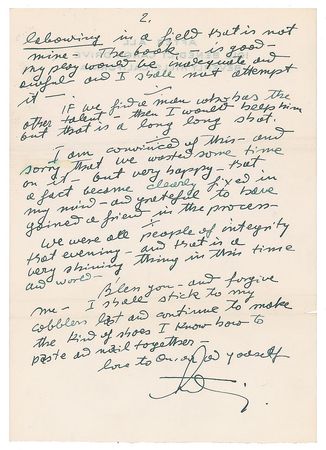 2.
laboring in a field that is not
mine - The book is good -
my play would be inadequate and
awful and I shall not attempt
it -
If we find a man who has the
other talent - then I would help him
but that is a long long shot.
I am convinced of this - and
sorry that we wasted some time
on it - but very happy - that
a fact became clearly fixed in
my mind - and grateful to have
gained a friend in the process
We were all people of integrity
that evening - and that is a
very shining thing in this time
and world -
Bless you - and forgive
me - I shall stick to my
cobblers last and continue to make
the kind of shoes I know how to
paste and nail together -
love to and yourself